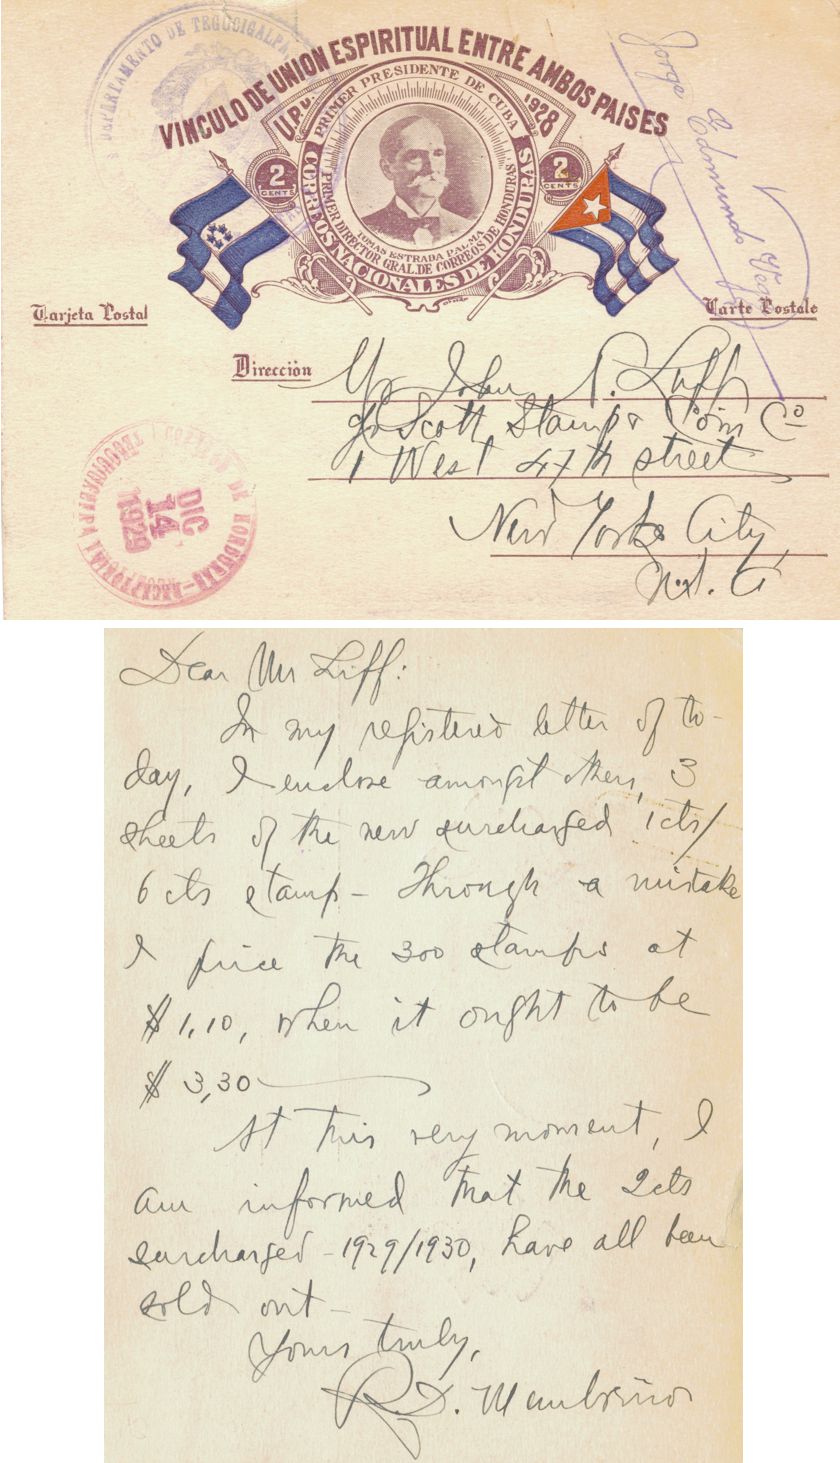 DEPARTAMENTO DE TEGUCIGALPA
VINCULO DE UNION ESPIRITUAL ENTRE AMBOS PAISES
U.P.U. 1928
PRIMER PRESIDENTE DE CUBA
2 CENTS
2 CENTS
TOMAS ESTRADA PALMA
PRIMER DIRECTOR GRAL. DE CORREOS DE HONDURAS
CORREOS NACIONALES DE HONDURAS
Jorge
Edmundo
Tarjeta Postal
Carte Postale
Dirección
Mr John N. Luff
c/o Scott Stamp & Coin Co
1 West 47th street
New York City,
DE HONDURAS-RECEPTORIA
TEGUCIGALPA
DIC
14
1929
Dear Mr Luff:
In my registered letter of to-
day, I enclose amongst others, 3
sheets of the new surcharged 1cts/
6 cts stamp - Through a mistake
I price the 300 stamps at
$1,10, when it ought to be
$3,30
At this very moment, I
am informed that the 2cts
surcharged - 1929/1930, have all been
sold out -
Yours truly,
R.D. Membreño